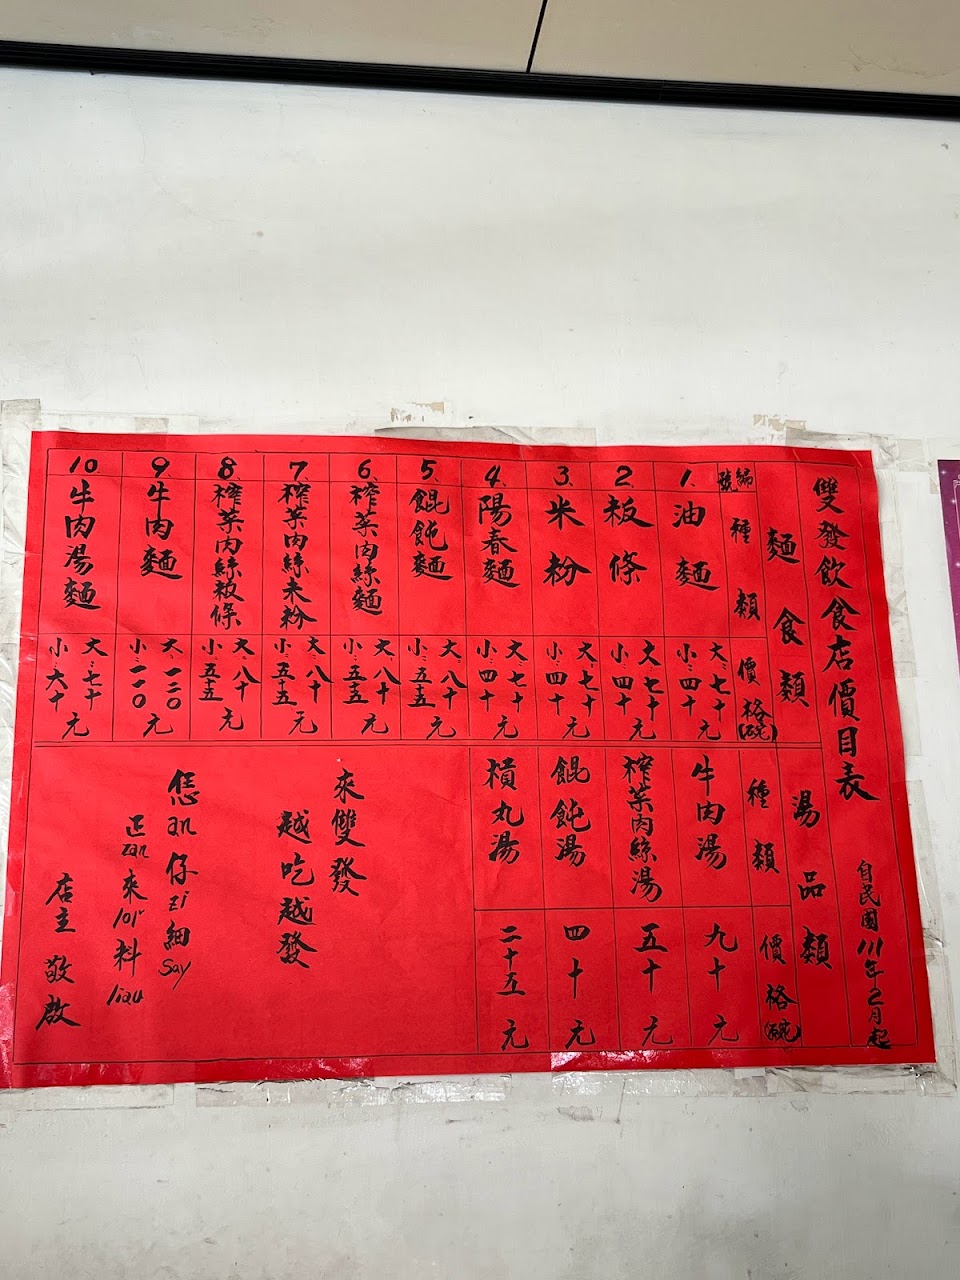 雙發飲食店價目表
自民國111年2月起
麵食類
編號 種類 價格(碗)
1. 油麵 大:七十 小:四十 元
2. 粄條 大:七十 小:四十 元
3. 米粉 大:七十 小:四十 元
4. 陽春麵 大:七十 小:四十 元
5. 餛飩麵 大:八十 小:五十五 元
6. 榨菜肉絲麵 大:八十 小:五五 元
7. 榨菜肉絲米粉 大:八十 小:五五 元
8. 榨菜肉絲粄條 大:八十 小:五五 元
9. 牛肉麵 大:一二〇 小:一一〇 元
10. 牛肉湯麵 大:七十 小:六十 元
湯品類
種類 價格(碗)
牛肉湯 九十元
榨菜肉絲湯 五十元
餛飩湯 四十元
摃丸湯 二十五元
來雙發
越吃越發
恁an仔zi細say
正zan來loi料liau
店主 敬啟